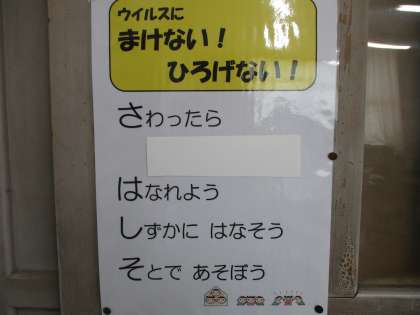 ウイルスに
まけない！
ひろげない！
さわったら
はなれよう
しずかに はなそう
そとで あそぼう